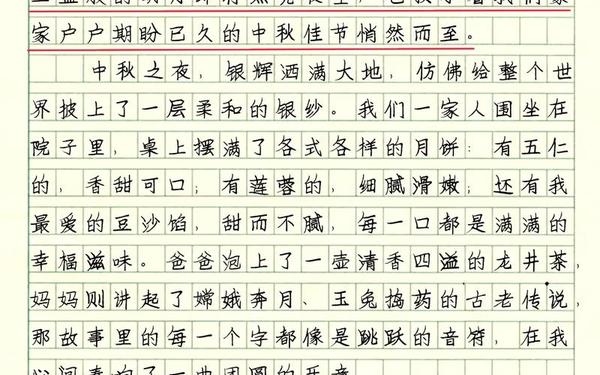 的明月
家户户期盼已久的中秋佳节悄然而至。
中秋之夜，银辉洒满大地，仿佛给整个世
界披上了一层柔和的银纱。我们一家人围坐在
院子里，桌上摆满了各式各样的月饼：有五仁
的，香甜可口；有莲蓉的，细腻滑嫩；还有我
最爱的豆沙馅，甜而不腻，每一口都是满满的
幸福滋味。爸爸泡上了一壶清香四溢的龙井茶，
妈妈则讲起了嫦娥奔月、玉兔捣药的古老传说，
那故事里的每一个字都像是跳跃的音符，在我
心间奏响了一曲团圆的乐章